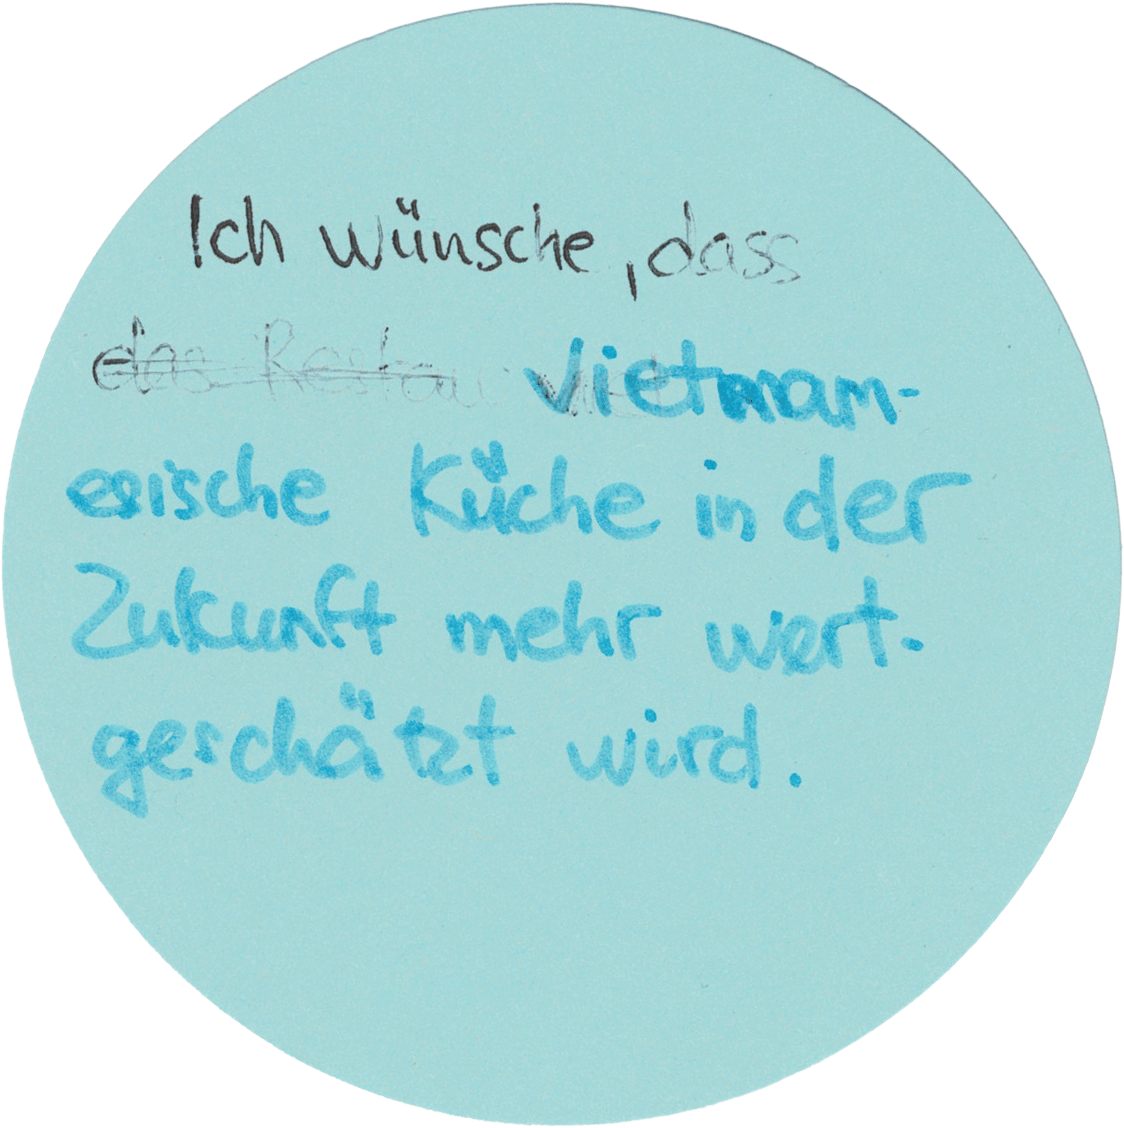 Ich wünsche, dass
vietnam-
esische Küche in der
Zukunft mehr wert-
geschätzt wird.